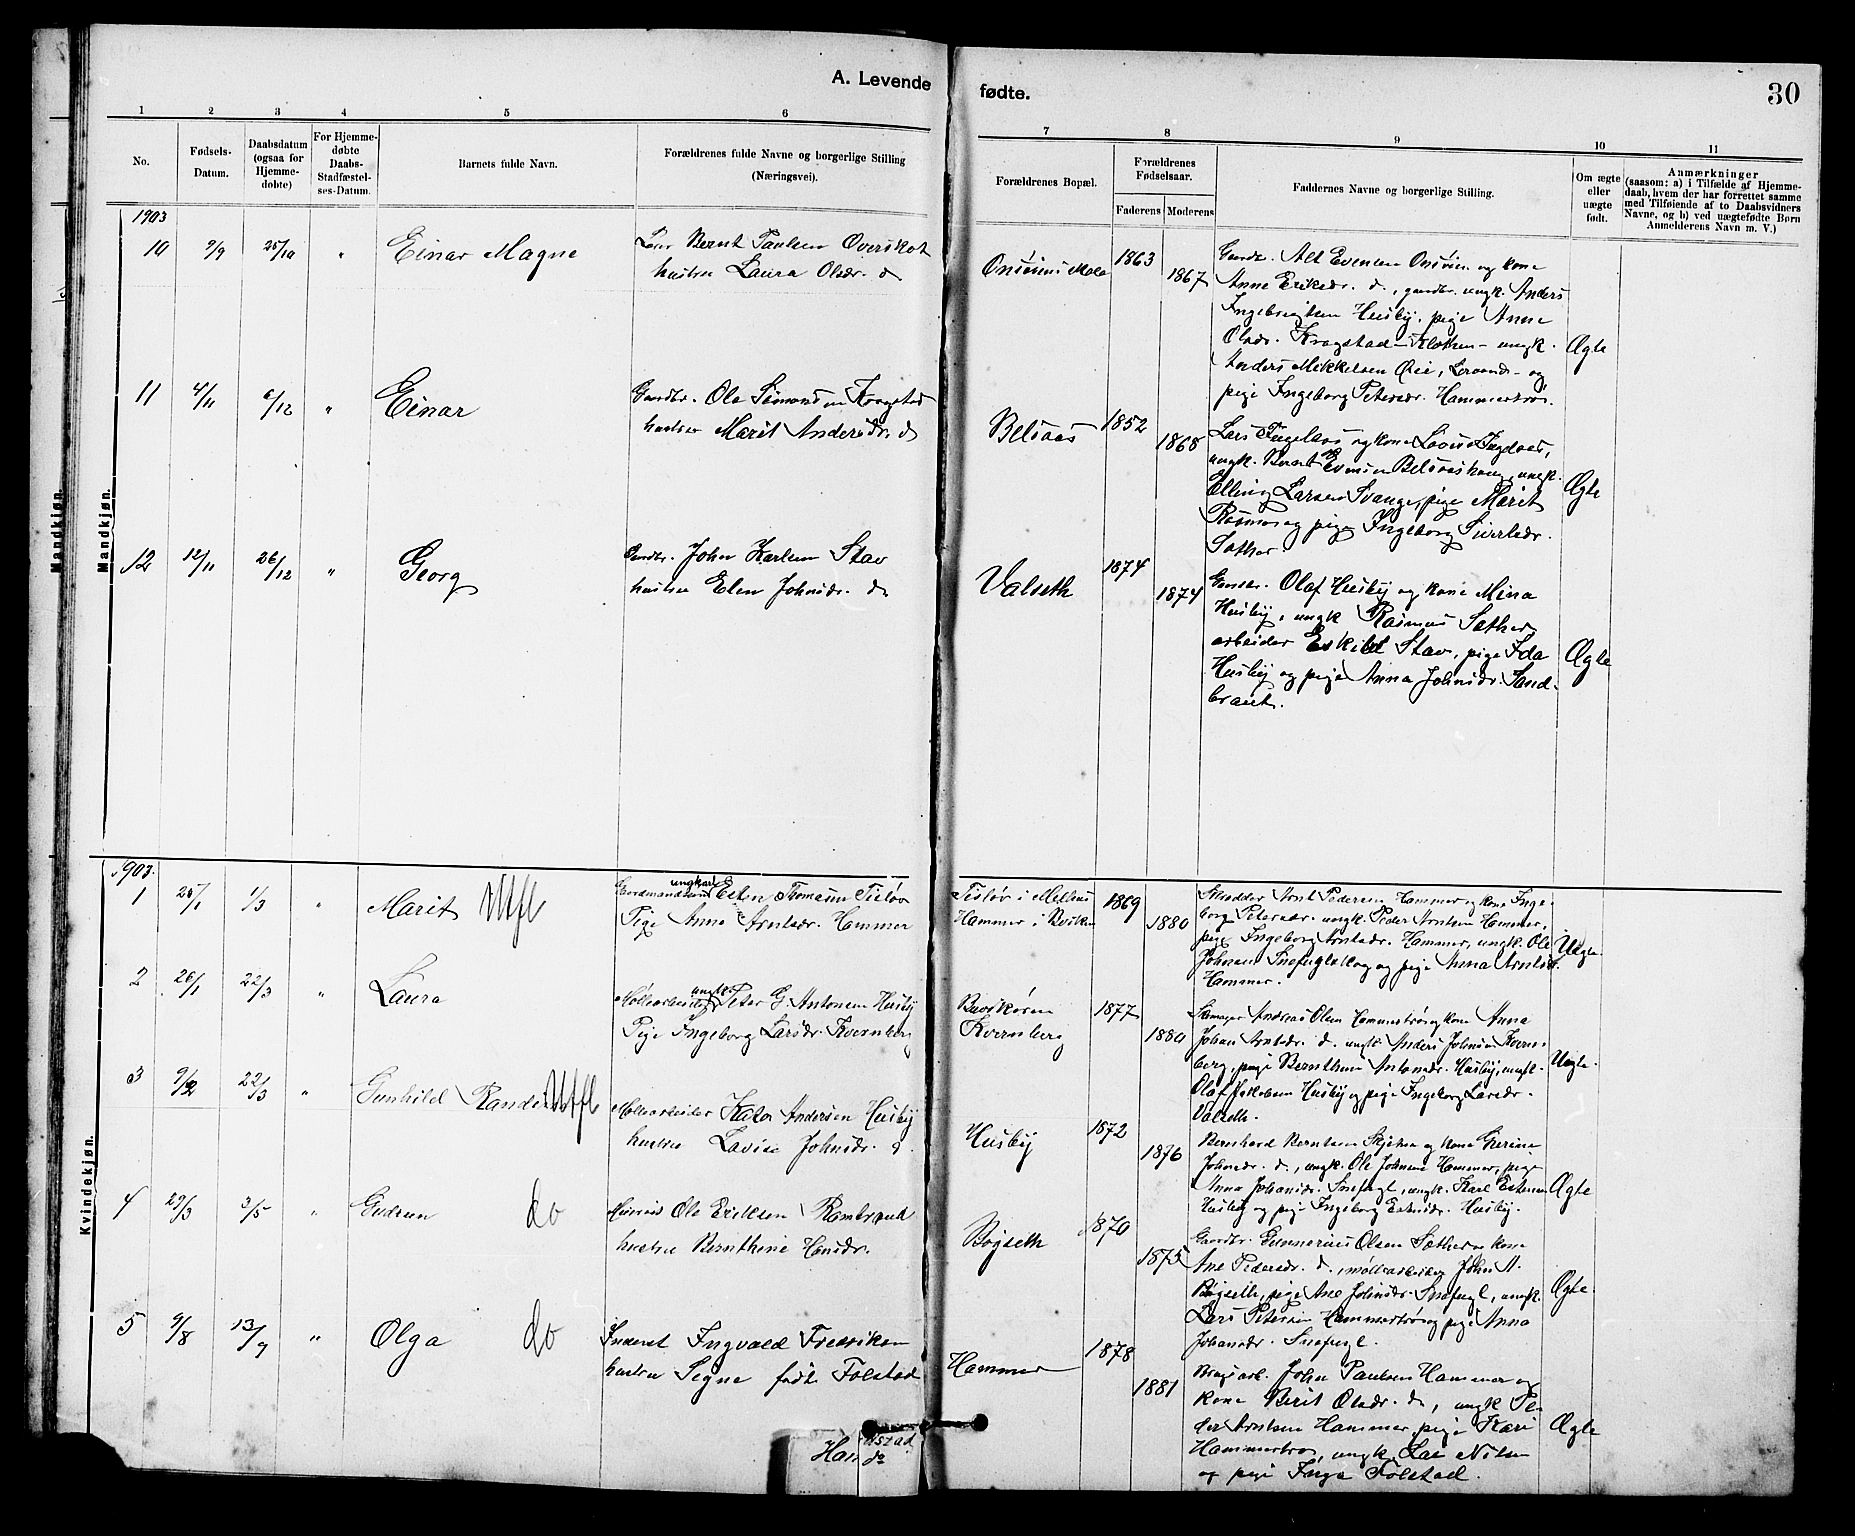 A. Levende
fødte.
30
1 2 3 4 5 6
7 8 9 10 11
No.
Fødsels-
Datum.
Daabsdatum
(ogsaa for
Hjemme-
døbte)
For Hjemme-
døbte
Daabs-
Stadfæstel-
ses-Datum.
Barnets fulde Navn.
Forældrenes fulde Navne og borgerlige Stilling
(Næringsvei).
Forældrenes Bopæl.
Forældrenes
Fødselsaar.
Faderens Moderens
Faddernes Navne og borgerlige Stilling.
Om ægte
eller
uægte
født.
Anmærkninger
(saasom: a) i Tilfælde af Hjemme-
daab, hvem der har forrettet samme
med Tilføiende af to Daabsvidners
Navne, og b) ved uægtefødte Børn
Anmelderens Navn m. V.)
Mandkjøn.
Mandkjøn.
1903
10 9/9 25/10 " Einar Magne
Bernt Paulsen Overskot
hustru Laura Olsdr. d
1863
1867
Gaardbr. Alt Evensen Onsøien og kone
Anne Eriksdr. d., gaardbr. ungk. Anders
Ingebrigtsen Husby, pige Anne
Olsdr. Kragstad - ungk.
Anders Mikkelsen Øie, - og
pige Ingeborg Petersdr. Hammertrøs.
Ægte
11 4/11 6/12 " Einar
Gaardbr. Ole Simonsen Kragstad
hustru Marit Andersdr. d
Belsaas
1852
1868
Lars og kone
ungk. Bernt Evensen Belsaashaug, ungk.
Elling Larsen Svange, pige Marit
Rosmo og pige Ingeborg Sivertsdr.
Sæther.
Ægte
12 12/11 26/12 " Georg
Gaardbr. John Karlsen Stav
hustru Elen Johnsdr. d
Valseth
1874
1874
Gaardbr. Olaf Husby og kone Mina
Husby, ungk Rasmus Sæther
arbeider Eskild Stav, pige Ida
Husby og pige Anna Johnsdr. Sand-
braut.
Ægte
Kvindekjøn.
1903.
1 25/1 1/3 " Marit Utfl
Gaardmandssøn ungkarl Esten Thomesen Tisløv
Pige Anne Arntsdr. Hammer
Tisløv i Melhus
Hammer i
1869
1880
Skrædder Arnt Pedersen Hammer og kone Inge-
borg Petersdr. ungk. Peder Arntsen Hammer,
pige Ingeborg Arntsdr. Hammer, ungk. Ole
Johnsen Snefuglskog og pige Anna Arntsdr.
Hammer.
Uægte.
2 26/1 22/3 " Laura
Møllearbeider ungk. Peter G. Antonsen Husby
Pige Ingeborg Larsdr. Kvernberg
Buvikøren
Kvernberg
1877
1880
Skomager Andreas Olsen Hammertrø og kone Anna
Johan Arntsdr. d. ungk. Anders Johnsen Kvern-
berg, pige Bernthine Antonsdr. Husby, ungk.
Olaf Jakobsen Husby og pige Ingeborg Larsdr.
Valseth.
Uægte.
3 9/2 22/3 " Gunhild Randi Utfl
Møllearbeider Kator Andersen Husby
hustru Lavise Johnsdr. d.
Husby
1872
1876
Bernhard Berntsen Skjetne og kone Sverine
Johnsdr. d., ungk. Ole Johnsen Hammer, pige
Anna Johansdr. Snefugl, ungk. Karl Estensen
Husby og pige Ingeborg Estensdr. Husby.
Ægte
4 29/3 3/5 " Gudrun do
Ole Eriksen Rambraut
hustru Bernthine Hansdr.
Bøgseth
1870
1875
Gaardbr. Gunnerius Olsen Sæther og kone
Ane Pedersdr. d., møllearbeider John A.
Bøgseth, pige Ane Johnsdr. Snefugl, ungk.
Lars Petersen Hammertrø og pige Anna
Johansdr. Snefugl.
Ægte
5 9/8 13/9 " Olga do
Inderst Ingvald Fredriksen
hustru Signe født Folstad
Hammer
1878
1881
John Paulsen Hammer og
kone Berit Olsdr. d., ungk Pe-
der Arntsen Hammer, pige Kari
Hammertrø, ungk. Nilsen
og pige Inga Folstad.
Ægte